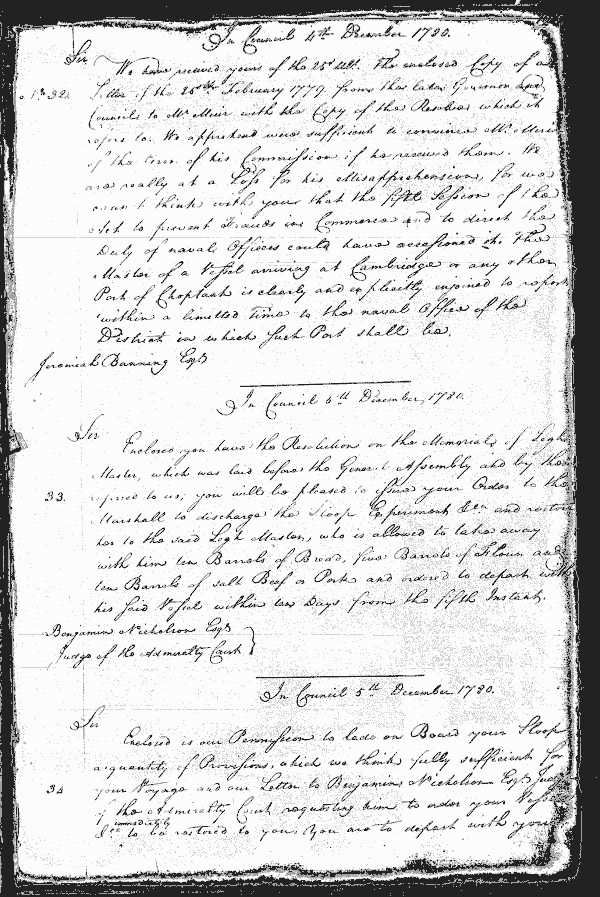 In Council 4th December 1780.
Sir
We have received yours of the 25th ult. The enclosed Copy of a
Letter of the 25th February 1779. from the late Governor and
32.
Council to Mr Muir with the Copy of the Resolve which it
refers to. We apprehend were sufficient to convince Mr Muir
of the Error of his Commission if he received them. We
are really at a Loss for his Misapprehension, for we
cant think with you that the fifth Session of the
Act to prevent Frauds in Commerce and to direct the
Duty of naval Officers could have occasioned it. The
Master of a Vessel arriving at Cambridge or any other
Port of Choptank is clearly and explicitly enjoined to report
within a limitted Time to the naval Office of the
District in which such Port shall lie.
Jeremiah Banning Esqr
In Council 5th December, 1780.
Sir
Enclosed you have the Resolution on the Memorial of Legh
Master, which was laid before the General Assembly and by them
33.
referred to us; you will be pleased to issue your Order to the
Marshall to discharge the Sloop Experiment &ca and restore
her to the said Legh Master, who is allowed to take away
with him ten Barrels of Bread, five Barrels of Flour and
ten Barrels of salt Beef or Pork and ordered to depart with
his said Vessel within ten Days from the fifth Instant.
Benjamin Nicholson Esqr
Judge of the Admiralty Court
In Council 5th December 1780.
Sir
Enclosed is our Permission to lade on Board your Sloop
a quantity of Provisions, which we think fully sufficient for
34
your Voyage and our Letter to Benjamin Nicholson Esqr Judge
of the Admiralty Court requesting him to order your Vessel
immediately
&ca to be restored to you. You are to depart with your